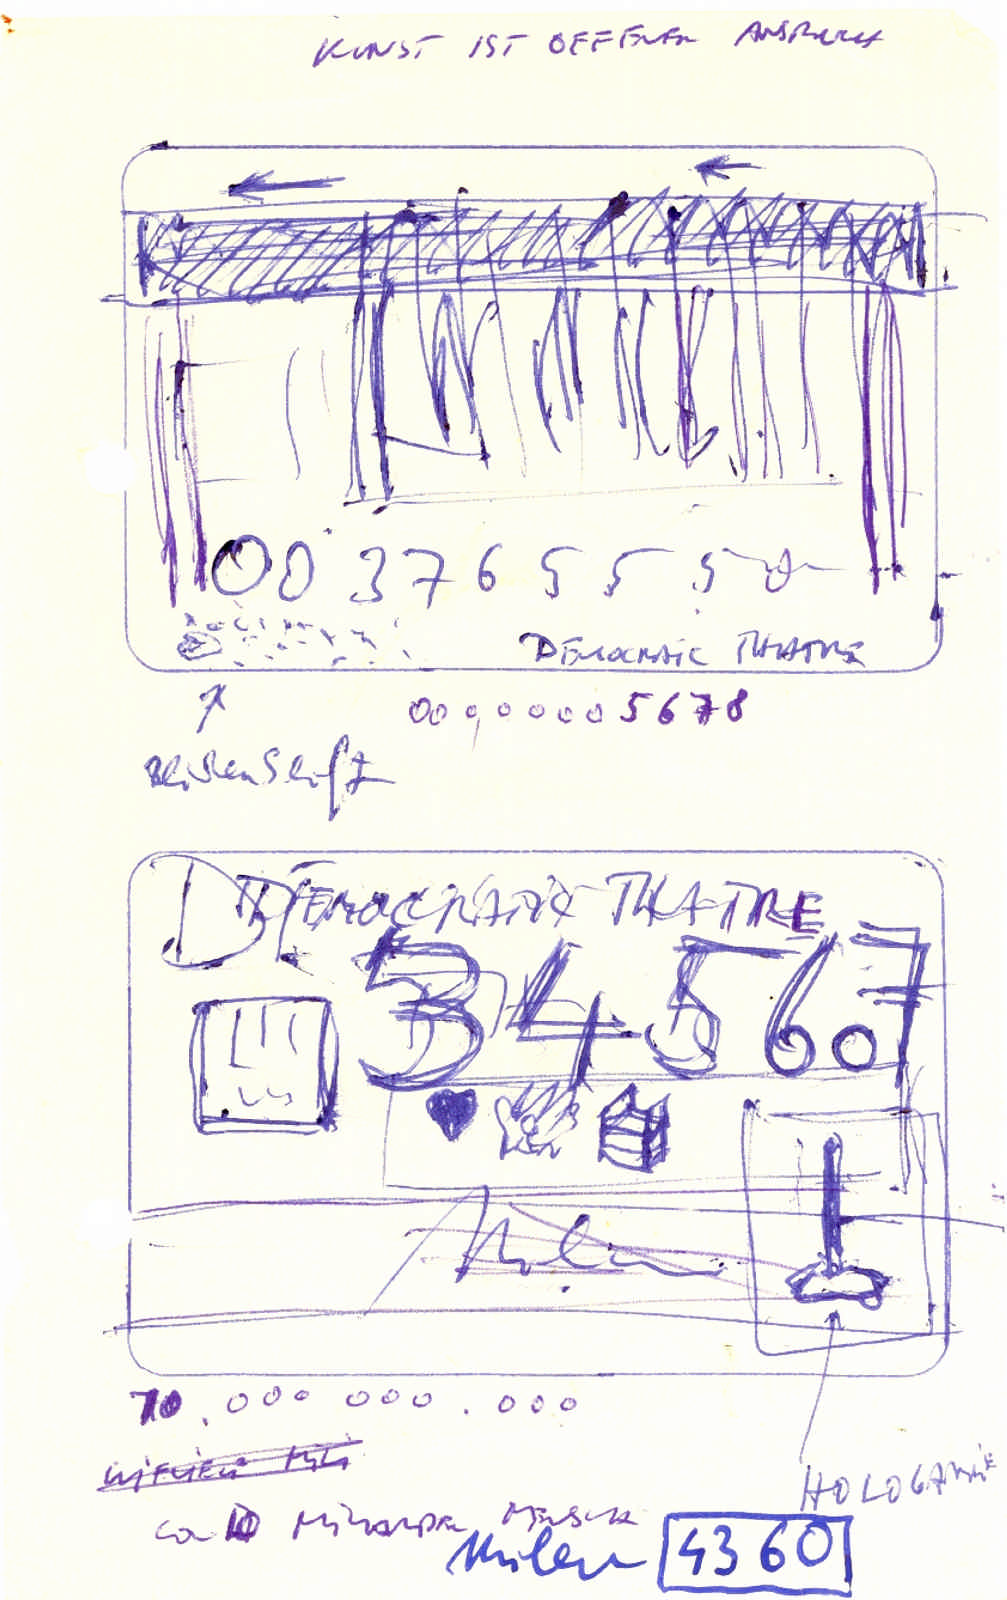 KUNST IST OFFENER ANSPRUCH
00 37 6 5 5 5 0
DEMOCRATIC THEATRE
00 0 0 0 0 0 5 6 7 8
DEMOCRATIC THEATRE
3 4 5 6 0 7
10.000 000.000
HOLOGRAMME
ca 10 MILLIARDEN MENSCHEN
4360